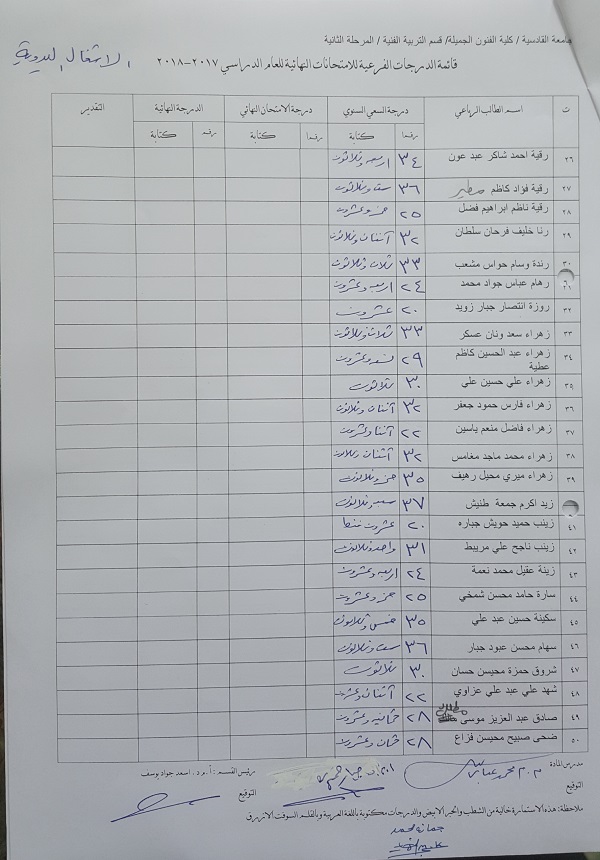 جامعة القادسية / كلية الفنون الجميلة/ قسم التربية الفنية / المرحلة الثانية
قائمة الدرجات الفرعية للامتحانات النهائية للعام الدراسي ٢٠١٧-٢٠١٨
الاشغال اليدوية
ت اسم الطالب الرباعي درجة السعي السنوي درجة الامتحان النهائي الدرجة النهائية التقدير
رقما كتابة رقما كتابة رقم كتابة
٢٦ رقية احمد شاكر عبد عون ٣٤ اربعة وثلاثون
٢٧ رقية فؤاد كاظم مطير ٣٦ ستة وثلاثون
٢٨ رقية ناظم ابراهيم فضل ٢٥ خمسة وعشرون
٢٩ رنا خليف فرحان سلطان ٣٢ اثنان وثلاثون
٣٠ رندة وسام حواس مشعب ٣٣ ثلاث وثلاثون
رهام عباس جواد محمد ٢٤ اربعة وعشرون
٣٢ روزة انتصار جبار زويد ٢٠ عشرون
٣٣ زهراء سعد ونان عسكر ٣٣ ثلاثة وثلاثون
٣٤ زهراء عبد الحسين كاظم عطية ٢٩ تسعة وعشرون
٣٥ زهراء علي حسين علي ٣٠ ثلاثون
٣٦ زهراء فارس حمود جعفر ٣٢ اثنان وثلاثون
٣٧ زهراء فاضل منعم ياسين ٢٢ اثنا وعشرون
٣٨ زهراء محمد ماجد مغامس ٣٢ اثنان وثلاثون
٣٩ زهراء ميري محيل رهيف ٣٥ خمسة وثلاثون
زيد اكرم جمعة طنيش ٣٧ سبعة وثلاثون
٤١ زينب حميد حويش جباره ٢٠ عشرون فقط
٤٢ زينب ناجح علي مريبط ٣١ واحد وثلاثون
٤٣ زينة عقيل محمد نعمة ٢٤ اربعة وعشرون
٤٤ سارة حامد محسن شمخي ٢٥ خمسة وعشرون
٤٥ سكينة حسين عبد علي ٣٥ خمس وثلاثون
٤٦ سهام محسن عبود جبار ٣٦ ستة وثلاثون
٤٧ شروق حمزة محيسن حسان ٣٠ ثلاثون
٤٨ شهد علي عبد علي عزاوي ٢٢ اثنان وعشرون
٤٩ صادق عبد العزيز موسى ٢٨ ثمانية وعشرون
٥٠ ضحى صبيح محيسن فزاع ٢٨ ثمان وعشرون
مدرس المادة م.م محمد عباس
رئيس القسم : أ.م.د. اسعد جواد يوسف
التوقيع التوقيع
ملاحظة: هذه الاستمارة خالية من الشطب والحبر الابيض والدرجات مكتوبة باللغة العربية وبالقلم السوفت الازرق
جمانة محمد